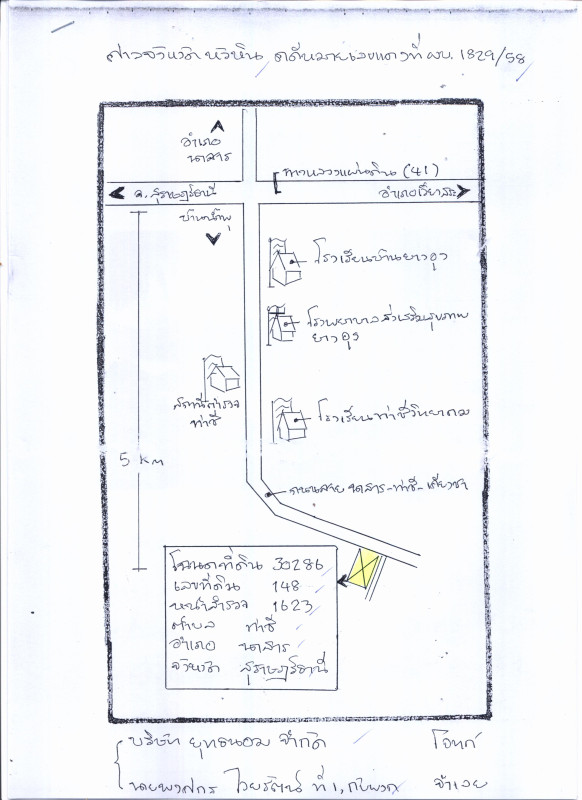 ศาลจังหวัด หัวหิน คดีหมายเลขแดงที่ ผบ. 1829/58
อำเภอ
นาสาร
ทางหลวงแผ่นดิน (41)
จ. สุราษฎร์ธานี
อำเภอเวียงสระ
บ้านน้ำพุ
โรงเรียนบ้านยางอุง
โรงพยาบาลส่งเสริมสุขภาพ
ยางอุง
สถานีตำรวจ
ท่าชี
โรงเรียนท่าชีวิทยาคม
5 km
ถนนสาย นาสาร-ท่าชี-
โฉนดที่ดิน 30286
เลขที่ดิน 148
หน้าสำรวจ 1623
ตำบล ท่าชี
อำเภอ นาสาร
จังหวัด สุราษฎร์ธานี
บริษัท ยุทธนอม จำกัด โจทก์
ที่ 1, กับพวก จำเลย